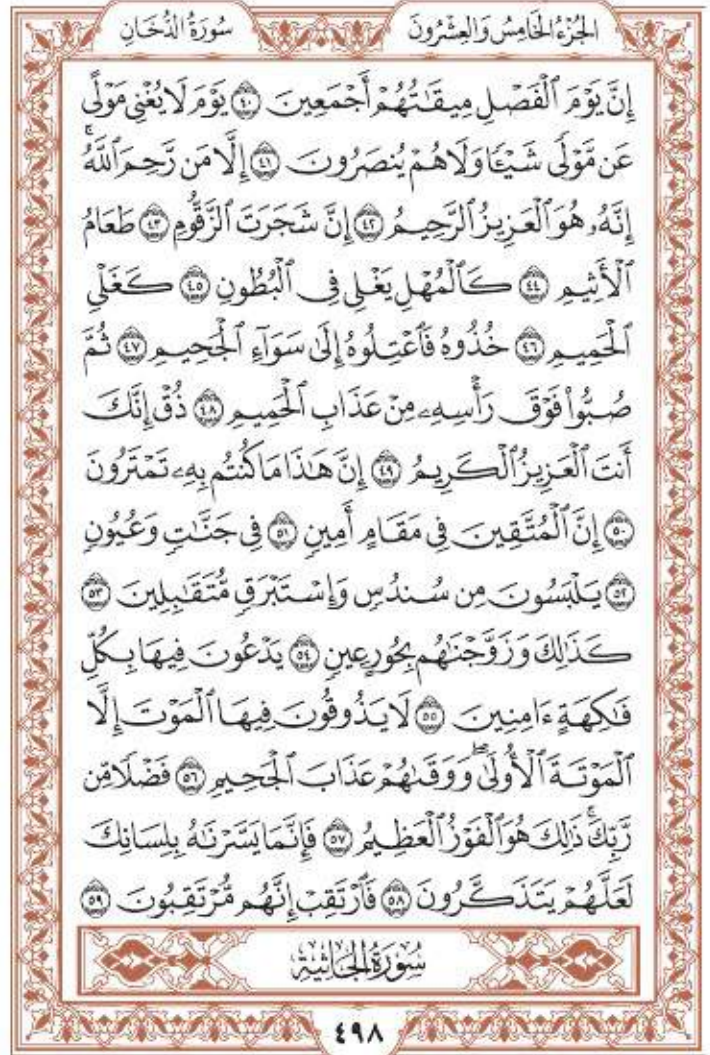 الجُزْءُ الخَامِسُ وَالعِشْرُونَ سُورَةُ الدُّخَانِ
إِنَّ يَوْمَ ٱلْفَصْلِ مِيقَٰتُهُمْ أَجْمَعِينَ ٤٠ يَوْمَ لَا يُغْنِى مَوْلًى
عَن مَّوْلًى شَيْـًٔا وَلَا هُمْ يُنصَرُونَ ٤١ إِلَّا مَن رَّحِمَ ٱللَّهُۚ
إِنَّهُۥ هُوَ ٱلْعَزِيزُ ٱلرَّحِيمُ ٤٢ إِنَّ شَجَرَتَ ٱلزَّقُّومِ ٤٣ طَعَامُ
ٱلْأَثِيمِ ٤٤ كَٱلْمُهْلِ يَغْلِى فِى ٱلْبُطُونِ ٤٥ كَغَلْىِ
ٱلْحَمِيمِ ٤٦ خُذُوهُ فَٱعْتِلُوهُ إِلَىٰ سَوَآءِ ٱلْجَحِيمِ ٤٧ ثُمَّ
صُبُّوا۟ فَوْقَ رَأْسِهِۦ مِنْ عَذَابِ ٱلْحَمِيمِ ٤٨ ذُقْ إِنَّكَ
أَنتَ ٱلْعَزِيزُ ٱلْكَرِيمُ ٤٩ إِنَّ هَٰذَا مَا كُنتُم بِهِۦ تَمْتَرُونَ
٥٠ إِنَّ ٱلْمُتَّقِينَ فِى مَقَامٍ أَمِينٍ ٥١ فِى جَنَّٰتٍ وَعُيُونٍ
٥٢ يَلْبَسُونَ مِن سُندُسٍ وَإِسْتَبْرَقٍ مُّتَقَٰبِلِينَ ٥٣
كَذَٰلِكَ وَزَوَّجْنَٰهُم بِحُورٍ عِينٍ ٥٤ يَدْعُونَ فِيهَا بِكُلِّ
فَٰكِهَةٍ ءَامِنِينَ ٥٥ لَا يَذُوقُونَ فِيهَا ٱلْمَوْتَ إِلَّا
ٱلْمَوْتَةَ ٱلْأُولَىٰۖ وَوَقَىٰهُمْ عَذَابَ ٱلْجَحِيمِ ٥٦ فَضْلًا مِّن
رَّبِّكَۚ ذَٰلِكَ هُوَ ٱلْفَوْزُ ٱلْعَظِيمُ ٥٧ فَإِنَّمَا يَسَّرْنَٰهُ بِلِسَانِكَ
لَعَلَّهُمْ يَتَذَكَّرُونَ ٥٨ فَٱرْتَقِبْ إِنَّهُم مُّرْتَقِبُونَ ٥٩
سُورَةُ الجَاثِيَةِ
٤٩٨